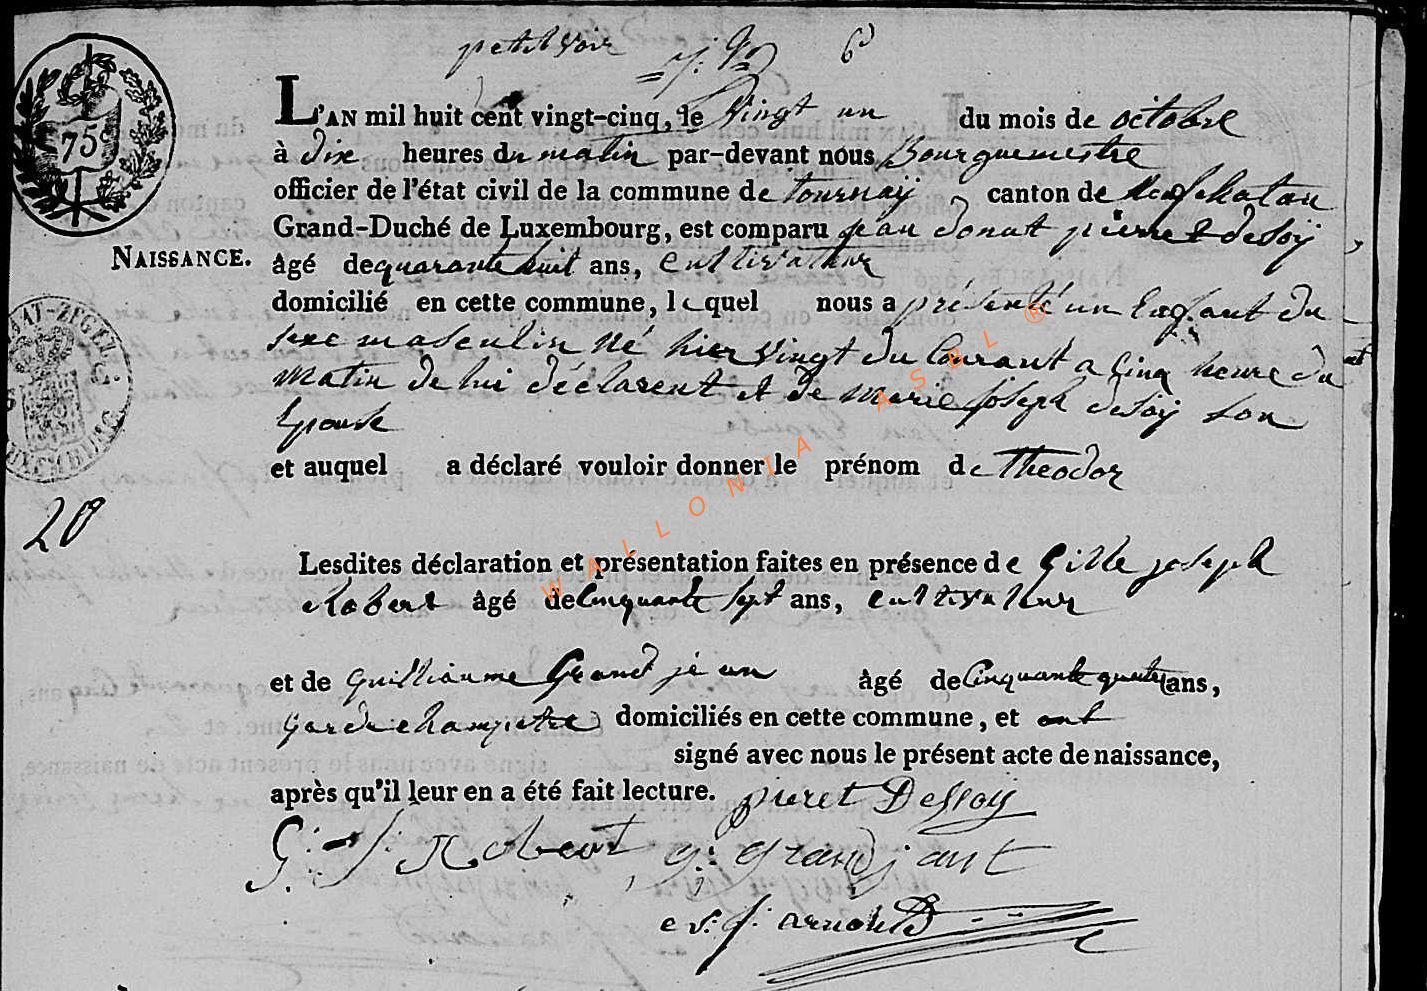 petit voir
6
75
L'AN mil huit cent vingt-cinq, le Vingt un du mois de octobre
à dix heures du matin par-devant nous Bourguemestre
officier de l'état civil de la commune de tournay canton de Neufchatau
Grand-Duché de Luxembourg, est comparu jean donat pierret desoÿ
NAISSANCE.
âgé de quarante huit ans, cultivateur
domicilié en cette commune, lequel nous a présenté un Enfant du
sexe masculin Né hier Vingt du Courant a Cinq heure du
matin de lui déclarent et de marie joseph desoÿ son
Epouse
et auquel a déclaré vouloir donner le prénom de theodor
20
Lesdites déclaration et présentation faites en présence de Gille joseph
Robert âgé de Cinquante sept ans, cultivateur
et de Guilliaume Grand jean âgé de Cinquante quatre ans,
garde champetre domiciliés en cette commune, et ont
signé avec nous le présent acte de naissance,
après qu'il leur en a été fait lecture. pieret Dessoy
G: J: Robert g: grandjant
J: arnould
WALLONIA ASBL ®